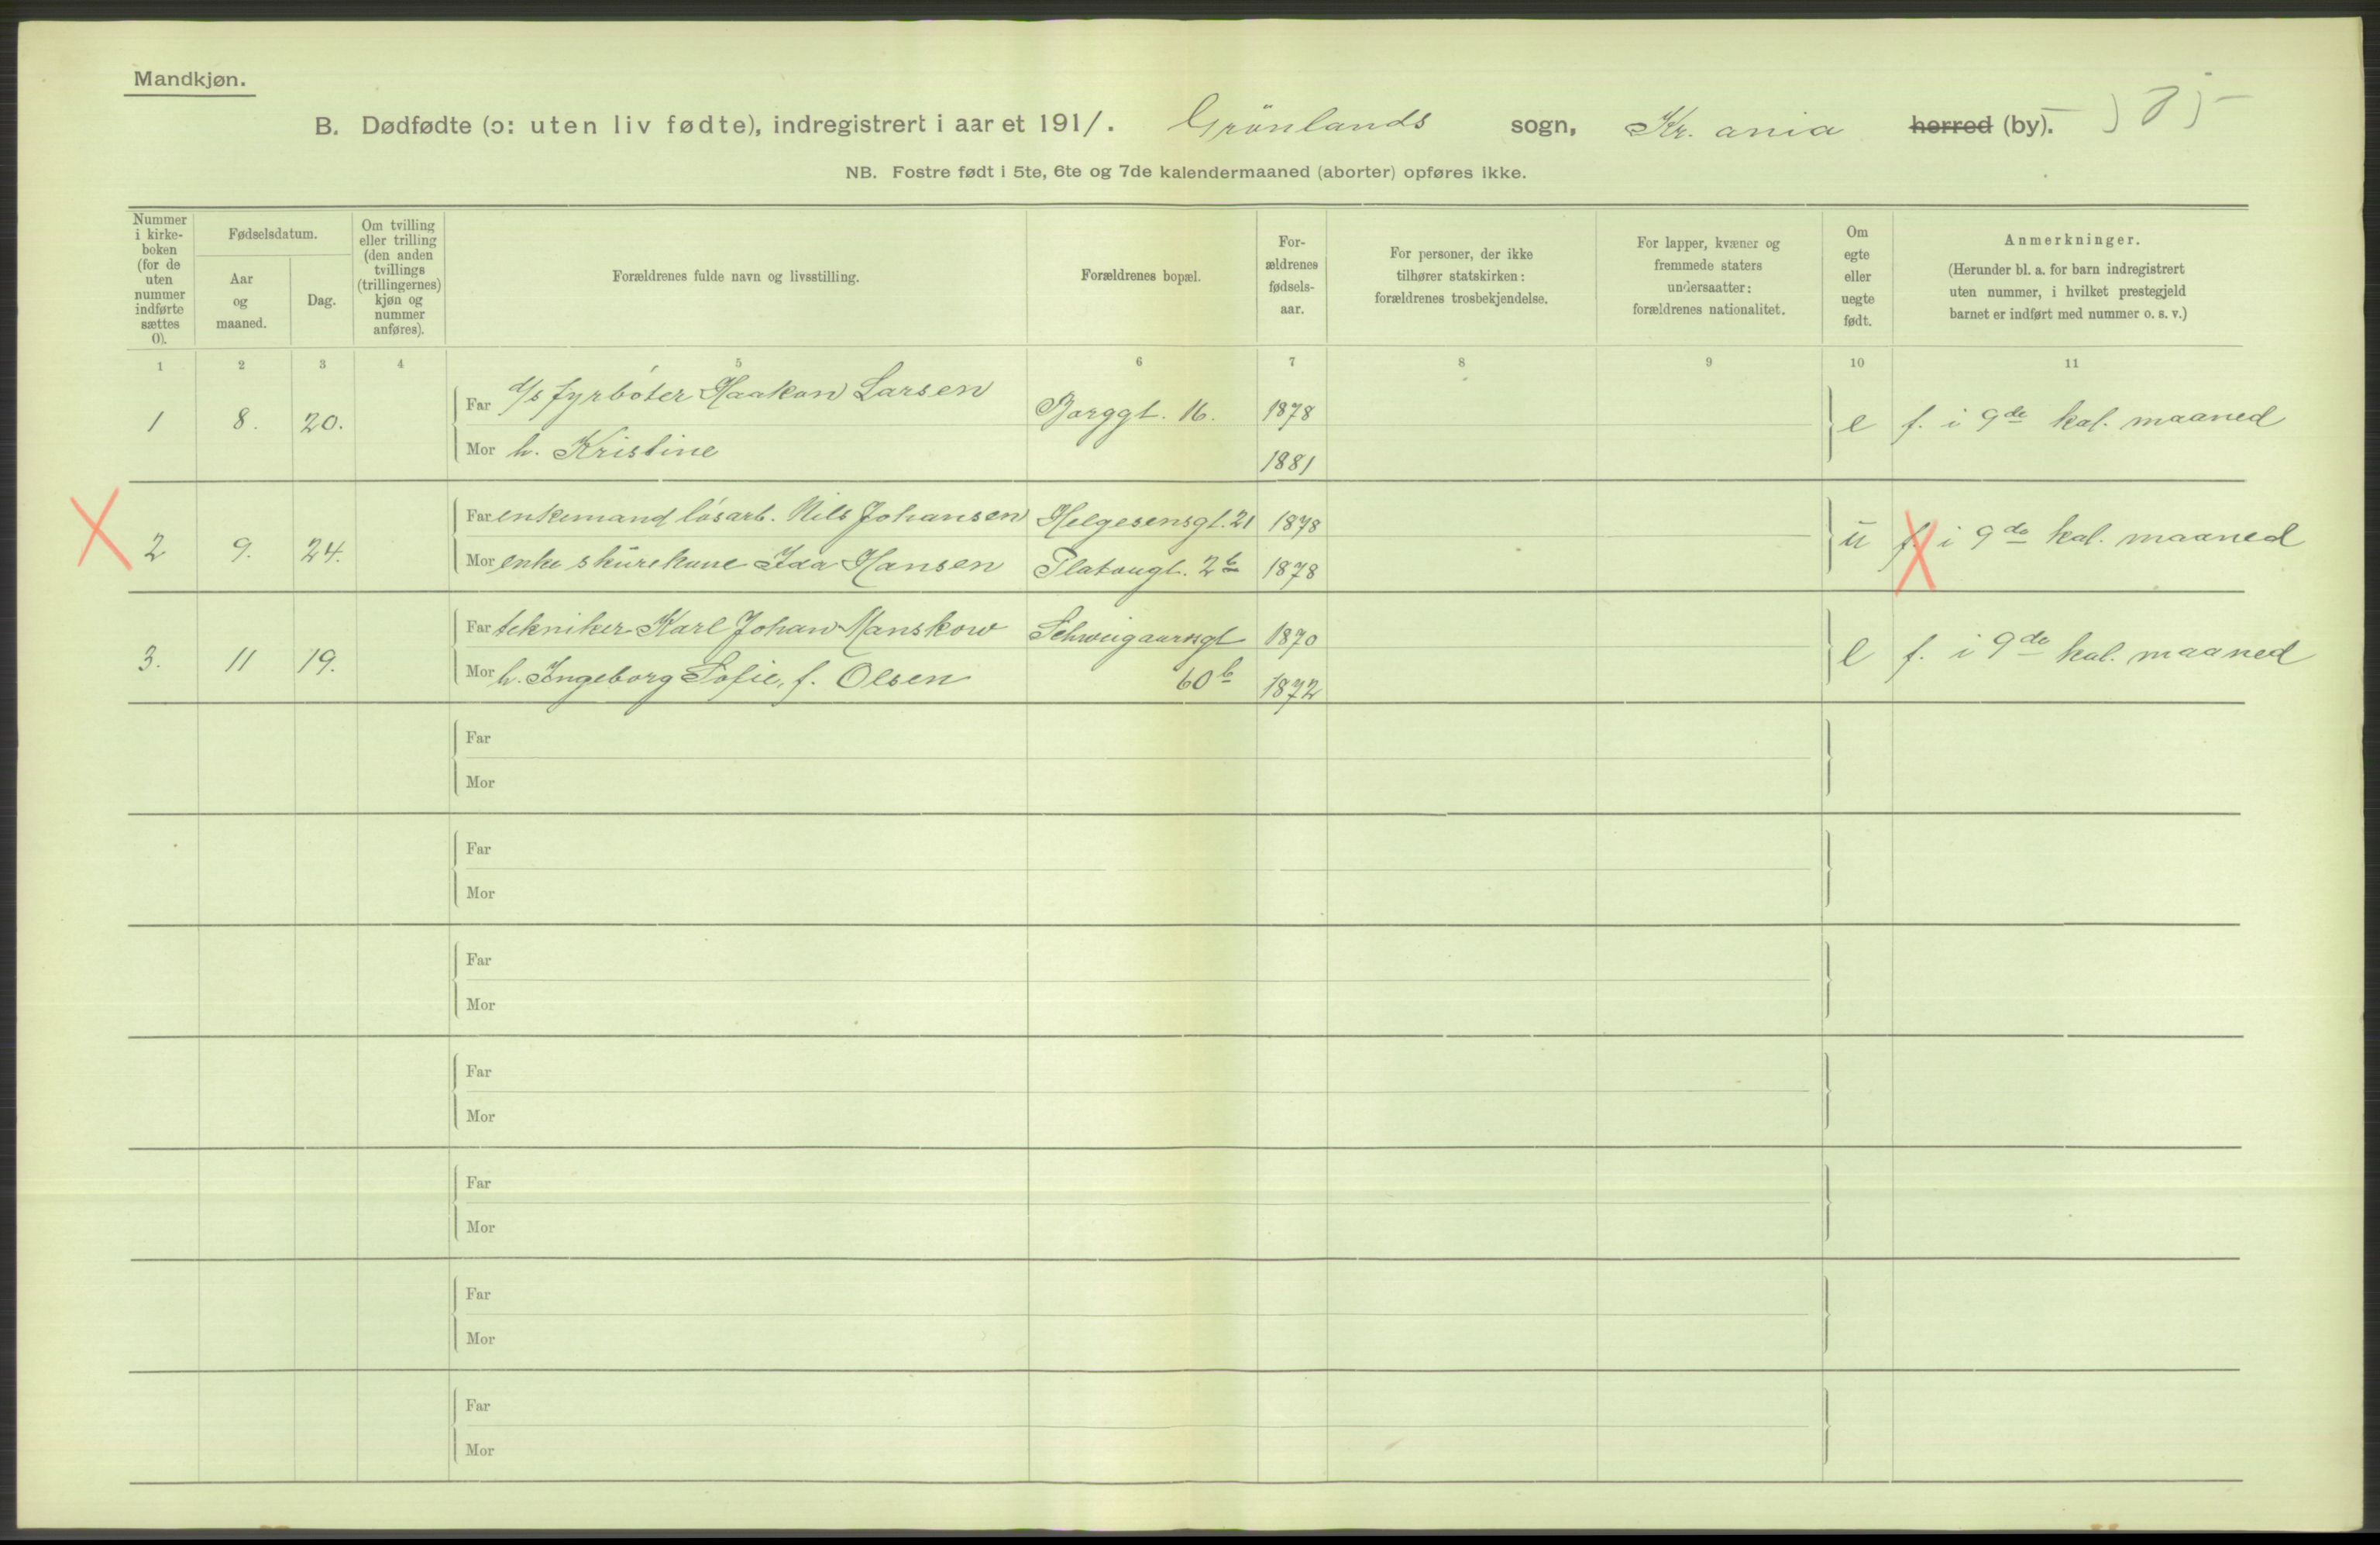 Mandkjøn.
B. Dødfødte (ɔ: uten liv fødte), indregistrert i aaret 1911. Grönlands sogn, Kr.ania herred (by).
NB. Fostre født i 5te, 6te og 7de kalendermaaned (aborter) opføres ikke.
Nummer i kirke- boken (for de uten nummer indførte sættes 0).
Fødselsdatum.
Aar og maaned.
Dag.
Om tvilling eller trilling (den anden tvillings (trillingernes) kjøn og nummer anføres).
Forældrenes fulde navn og livsstilling.
Forældrenes bopæl.
For- ældrenes fødsels- aar.
For personer, der ikke tilhører statskirken: forældrenes trosbekjendelse.
For lapper, kvæner og fremmede staters undersaatter: forældrenes nationalitet.
Om egte eller uegte født.
Anmerkninger.
(Herunder bl. a. for barn indregistrert uten nummer, i hvilket prestegjeld barnet er indført med nummer o. s. v.)
1 2 3 4 5 6 7 8 9 10 11
1 8. 20. Far d/s fyrböter Haakon Larsen Borggt. 16. 1878 e f. i 9de kal. maaned
Mor h. Kristine 1881
2 9. 24. Far enkemand løsarb. Nils Johansen Helgesensgt. 21 1878 u f. i 9de kal. maaned
Mor enke skurekone Ida Hansen Platougt. 2b 1878
3. 11 19. Far tekniker Karl Johan Manskow Schweigaardsgt 1870 e f. i 9de kal. maaned
Mor h. Ingeborg Sofie, f. Olsen 60b 1872
Far
Mor
Far
Mor
Far
Mor
Far
Mor
Far
Mor
Far
Mor
Far
Mor